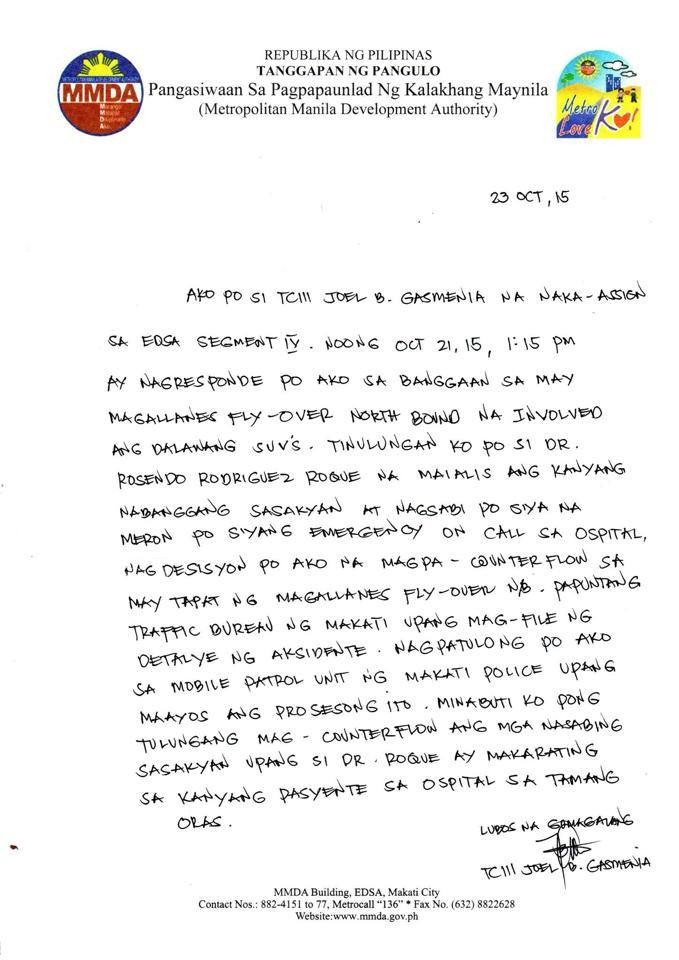 REPUBLIKA NG PILIPINAS
TANGGAPAN NG PANGULO
Pangasiwaan Sa Pagpapaunlad Ng Kalakhang Maynila
(Metropolitan Manila Development Authority)
MMDA
Metro Love Ko!
23 OCT, 15
AKO PO SI TCIII JOEL B. GASMENIA NA NAKA-ASSIGN
SA EDSA SEGMENT IV. NOONG OCT 21, 15, 1:15 PM
AY NAGRESPONDE PO AKO SA BANGGAAN SA MAY
MAGALLANES FLY-OVER NORTH BOUND NA INVOLVED
ANG DALAWANG SUV'S. TINULUNGAN KO PO SI DR.
ROSENDO RODRIGUEZ ROQUE NA MAIALIS ANG KANYANG
NABANGGANG SASAKYAN AT NAGSABI PO SIYA NA
MERON PO SIYANG EMERGENCY ON CALL SA OSPITAL,
NAG DESISYON PO AKO NA MAGPA-COUNTERFLOW SA
MAY TAPAT NG MAGALLANES FLY-OVER N/B. PAPUNTANG
TRAFFIC BUREAU NG MAKATI UPANG MAG-FILE NG
DETALYE NG AKSIDENTE. NAGPATULONG PO AKO
SA MOBILE PATROL UNIT NG MAKATI POLICE UPANG
MAAYOS ANG PROSESONG ITO. MINABUTI KO PONG
TULUNGANG MAG-COUNTERFLOW ANG MGA NASABING
SASAKYAN UPANG SI DR. ROQUE AY MAKARATING
SA KANYANG PASYENTE SA OSPITAL SA TAMANG
ORAS.
LUBOS NA GUMAGALANG
TCIII JOEL B. GASMENIA
MMDA Building, EDSA, Makati City
Contact Nos.: 882-4151 to 77, Metrocall "136" * Fax No. (632) 8822628
Website:www.mmda.gov.ph